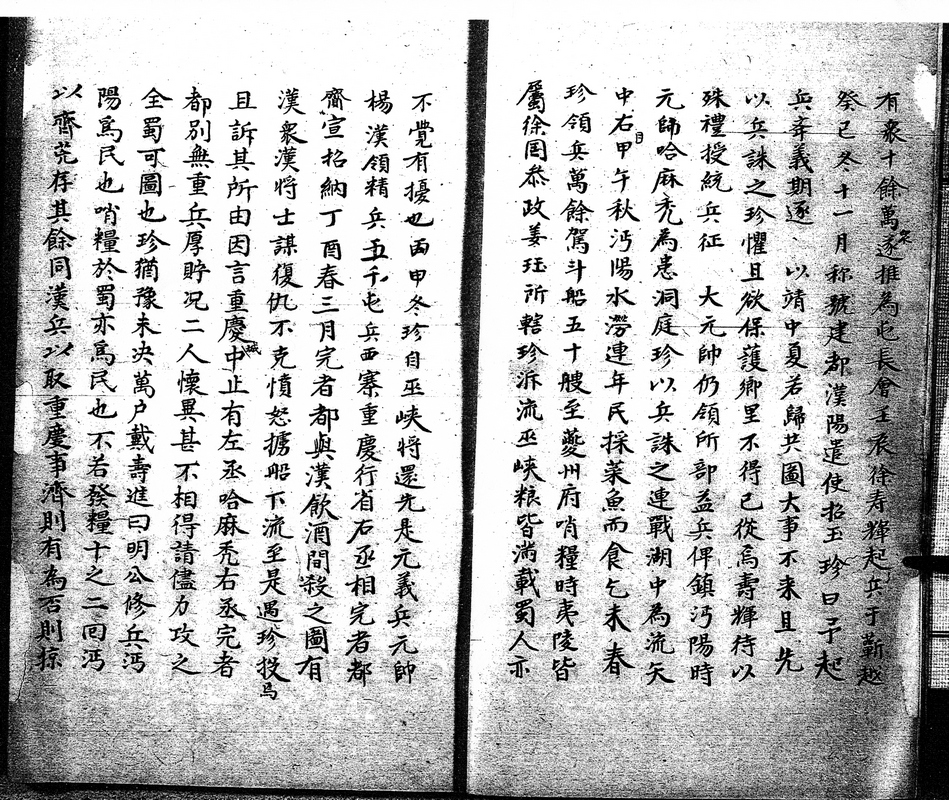 有衆十餘萬衆遂推為屯長會壬辰徐寿輝起兵于蘄越
癸巳冬十一月称號建都漢陽遣使招玉珍曰予起
兵奔義期逐以靖中夏若歸共圖大事不来且先
以兵誅之珍懼且欲保護鄉里不得已從焉壽輝待以
殊禮授統兵征大元帥仍領所部益兵俾鎮沔陽時
元師哈麻禿為患洞庭珍以兵誅之連戰湖中為流矢
中右目甲午秋沔陽水澇連年民採菜魚而食乞未春
珍領兵萬餘駕斗船五十艘至夔州府哨糧時夷陵皆
屬徐罔叅政姜珏所轄珍泝流巫峽粮皆満載蜀人亦
不覺有擾也丙申冬珍自巫峽将還先是元義兵元帥
楊漢領精兵五千屯兵西寨重慶行省右丞相完者都
齎宣招納丁酉春三月完者都與漢飲酒間殺之圖有
漢衆漢将士謀復仇不克憤怒擄船下流至是遇珍投焉
且訴其所由因言重慶城中止有左丞哈麻秃右丞完者
都別無重兵厚貯况二人懷異甚不相得請儘力攻之
全蜀可圖也珍猶豫未决萬户戴壽進曰明公修兵沔
陽為民也哨糧於蜀亦為民也不若發糧十之二囘沔
以齊荒存其餘同漢兵以取重慶事濟則有為否則掠